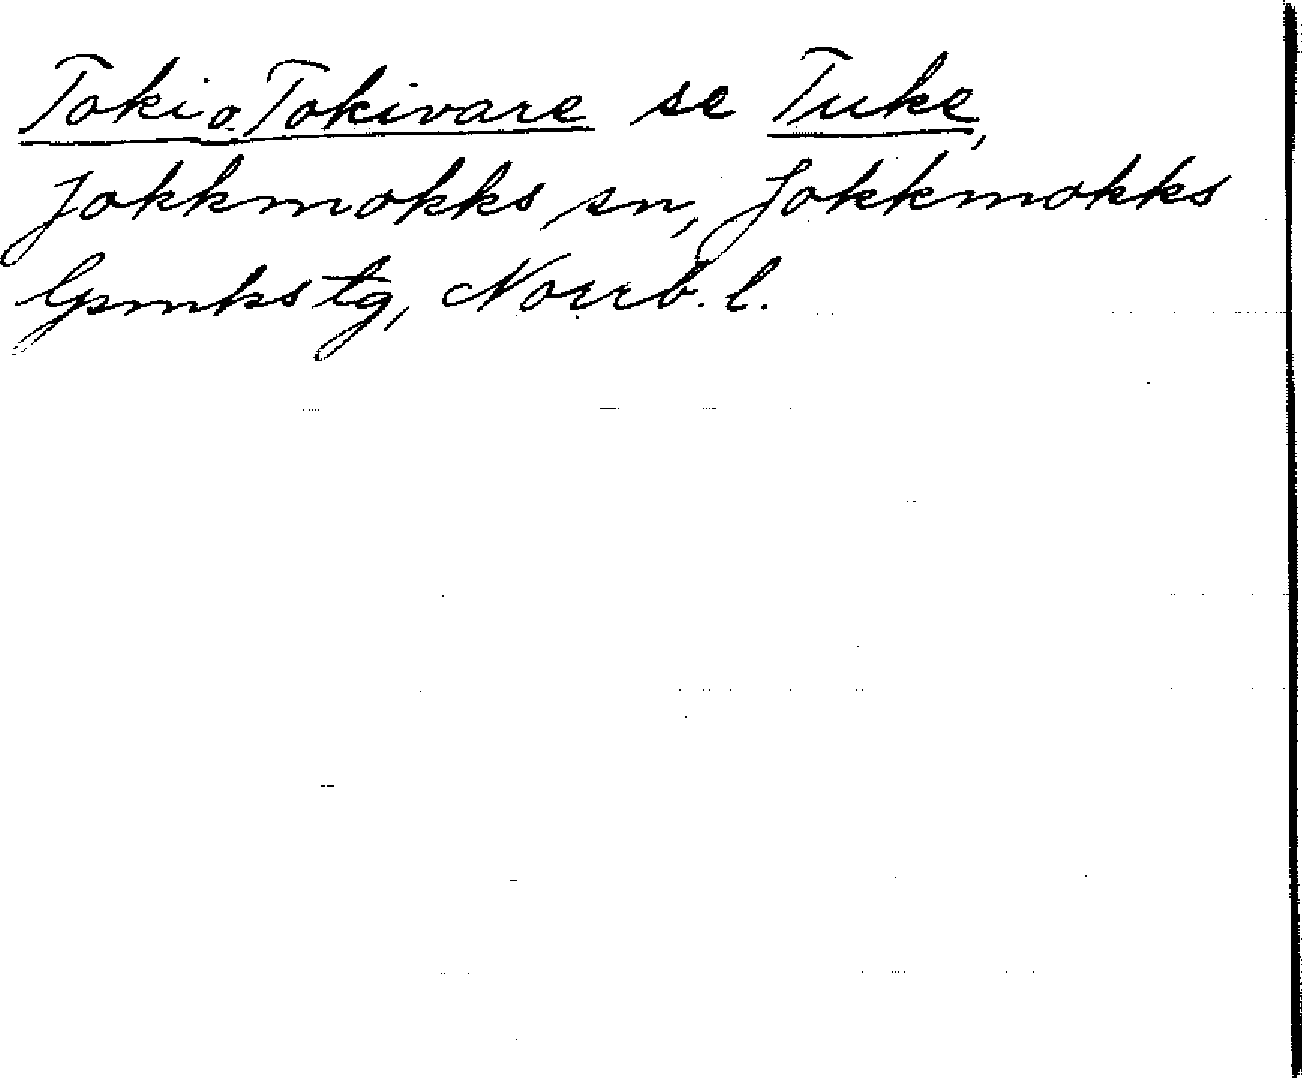 Toki o. Tokivare se Tuke,
Jokkmokks sn, Jokkmokks
lpmks tg, Norrb. l.